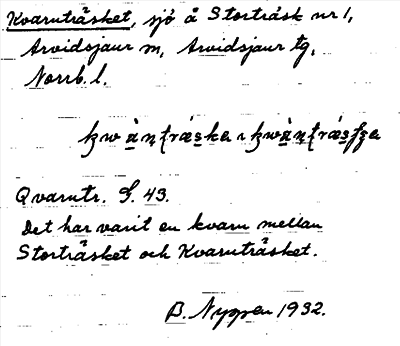 Kvarnträsket, sjö å Storträsk nr 1,
Arvidsjaur sn, Arvidsjaur tg,
Norrb. l.
Qvarntr. G. 43.
Det har varit en kvarn mellan
Storträsket och Kvarnträsket.
B. Nygren 1932.